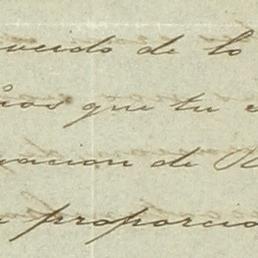 cuerdo de lo
que tu
uacion de
proporcio